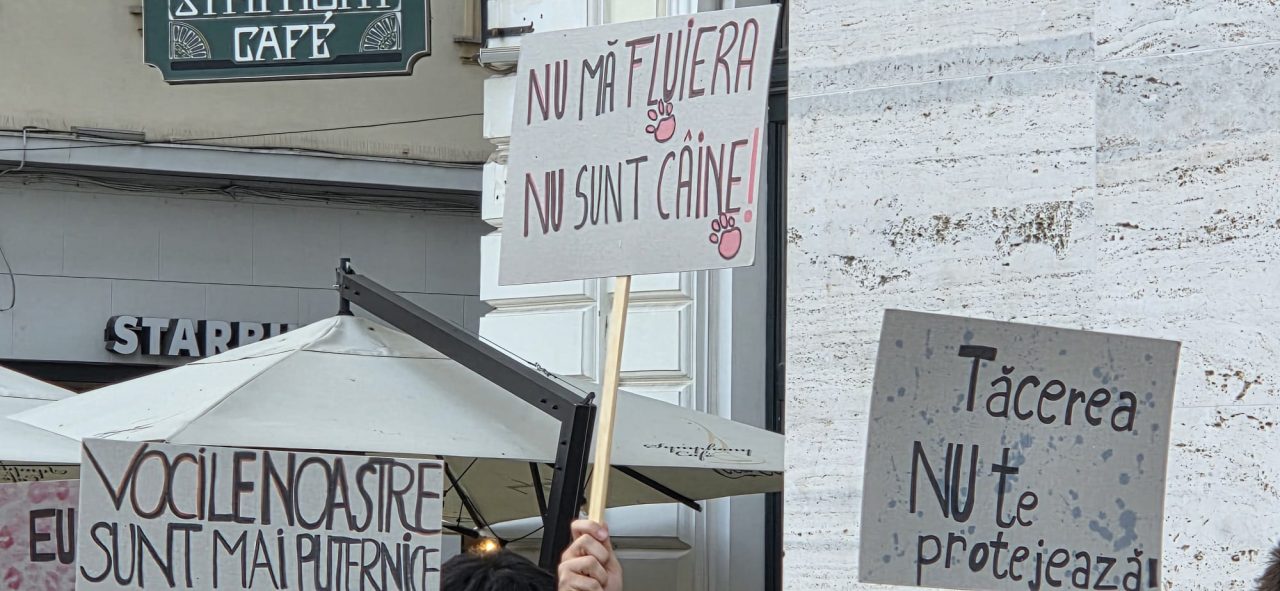 CAFÉ
NU MĂ FLUIERA
NU SUNT CÂINE!
Tăcerea
NU te
protejează!
VOCILE NOASTRE
SUNT MAI PUTERNICE
EU